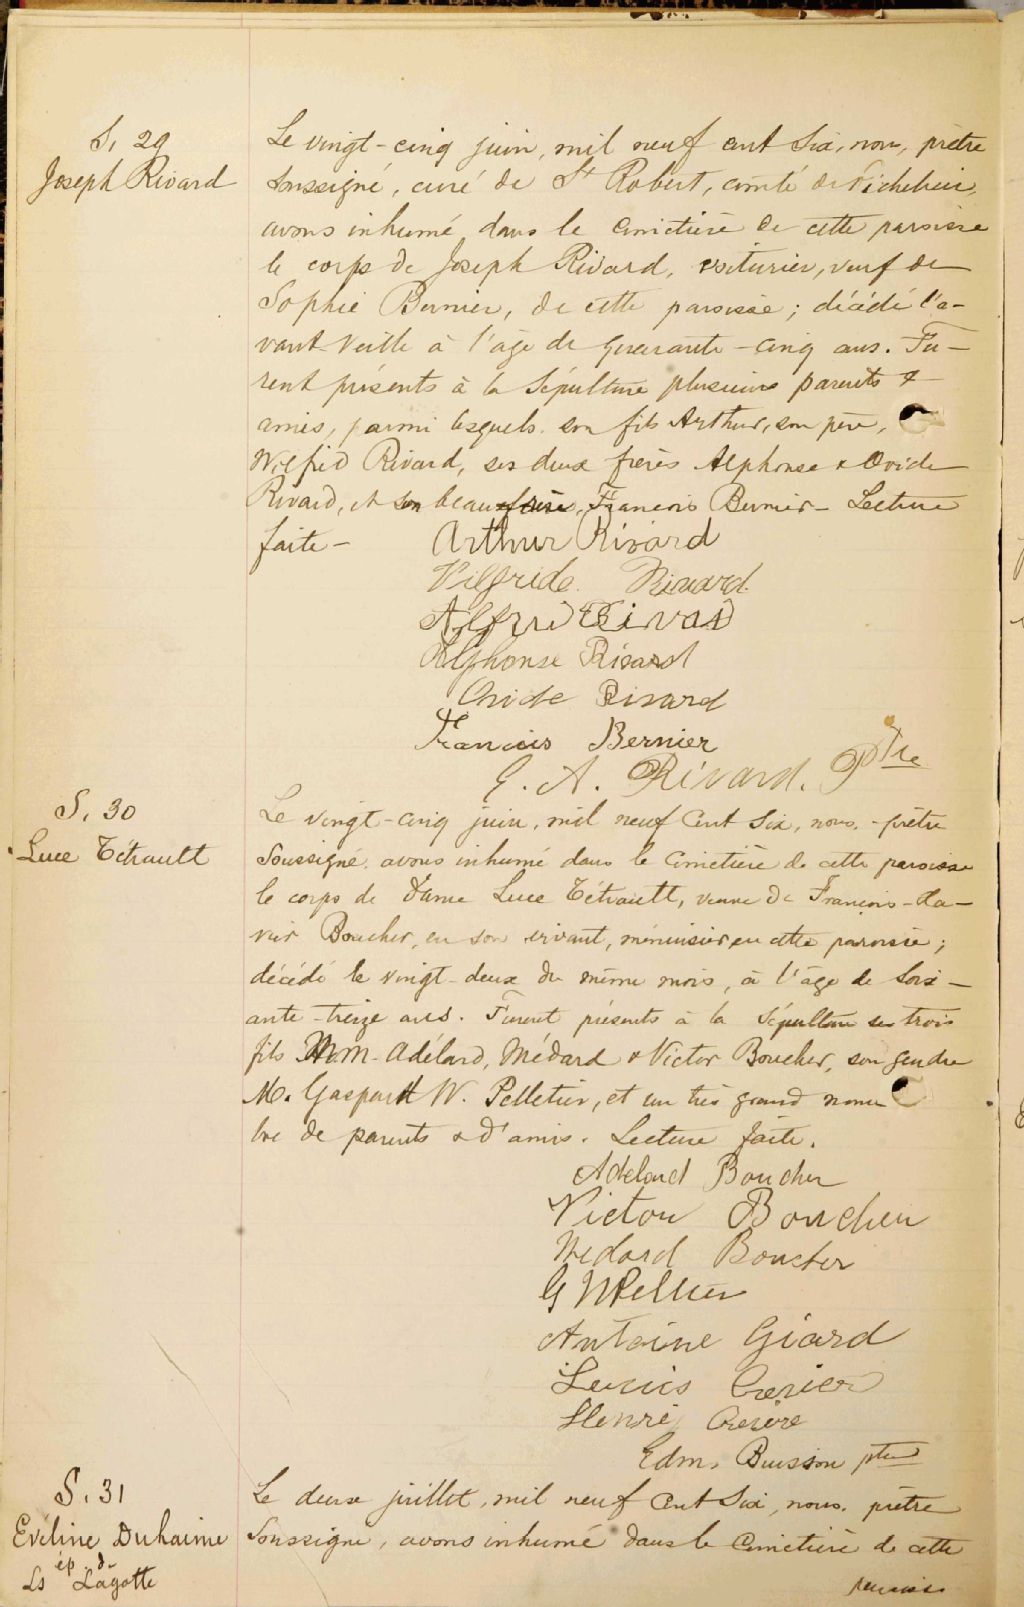 S. 29
Joseph Rivard
Le vingt-cinq juin, mil neuf cent six, nous, prêtre
soussigné, curé de St Robert, comté de Richelieu,
avons inhumé dans le cimetière de cette paroisse
le corps de Joseph Rivard, voiturier, veuf de
Sophie Bernier, de cette paroisse; décédé l'a-
vant-veille à l'âge de quarante-cinq ans. Fu-
rent présents à la sépulture plusieurs parents &
amis, parmi lesquels son fils Arthur, son père,
Wilfrid Rivard, ses deux frères Alphonse & Ovide
Rivard, et son beau-frère, François Bernier- Lecture
faite-
Arthur Rivard
Vilfride Rivard
Alfrid Rivard
Alphonse Rivard
Ovide Rivard
Francois Bernier
G. A. Rivard. Ptre
S. 30
Luce Tétrault
Le vingt-cinq juin, mil neuf cent six, nous, prêtre
soussigné, avons inhumé dans le cimetière de cette paroisse
le corps de Dame Luce Tétrault, veuve de François-Xa-
vier Boucher, en son vivant, menuisier en cette paroisse;
décédé le vingt-deux du même mois, à l'âge de soix-
ante-treize ans. Furent présents à la sépulture ses trois
fils MM. Adélard, Médard & Victor Boucher, son gendre
M. Gaspard W. Pelletier, et un très grand nom-
bre de parents & d'amis. Lecture faite.
Adelard Boucher
Victor Boucher
Medard Boucher
G W Pelletier
Antoine Giard
Henri
Edm. Buisson ptre
S. 31
Eveline Duhaime
ép. de
Ls Lagotte
Le deux juillet, mil neuf cent six, nous, prêtre
soussigné, avons inhumé dans le cimetière de cette
paroisse